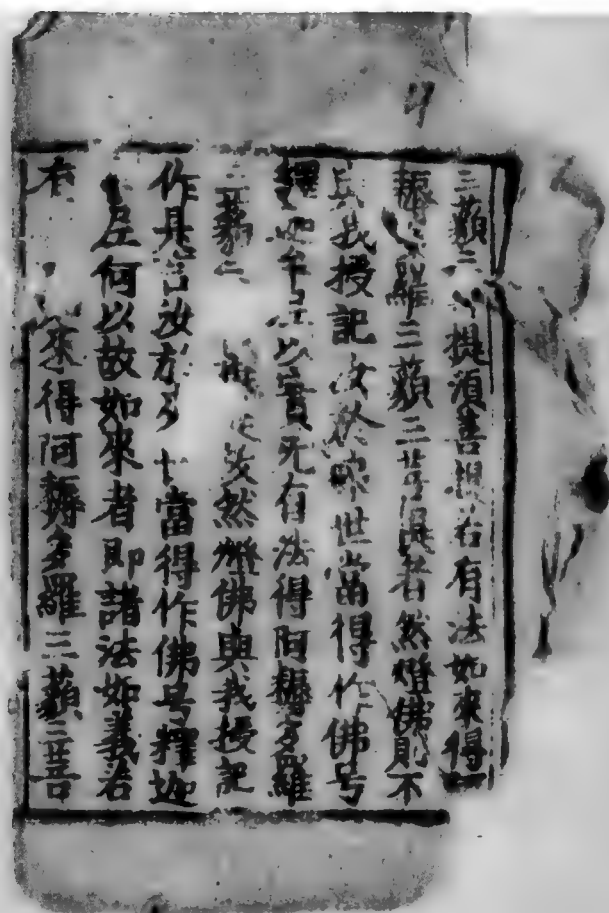 三藐三提須菩提若有法如來得
耨多羅三藐三菩提者然燈佛則不
與我授記汝於來世當得作佛号
釋迦牟尼以實无有法得阿耨多羅
三藐三然燈佛與我授記
作是言汝於當得作佛号釋迦
尼何以故如來者即諸法如義若
有來得阿耨多羅三藐三菩